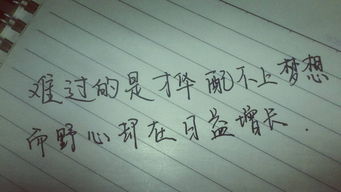 难过的是才华配不上梦想
而野心却在日益增长.